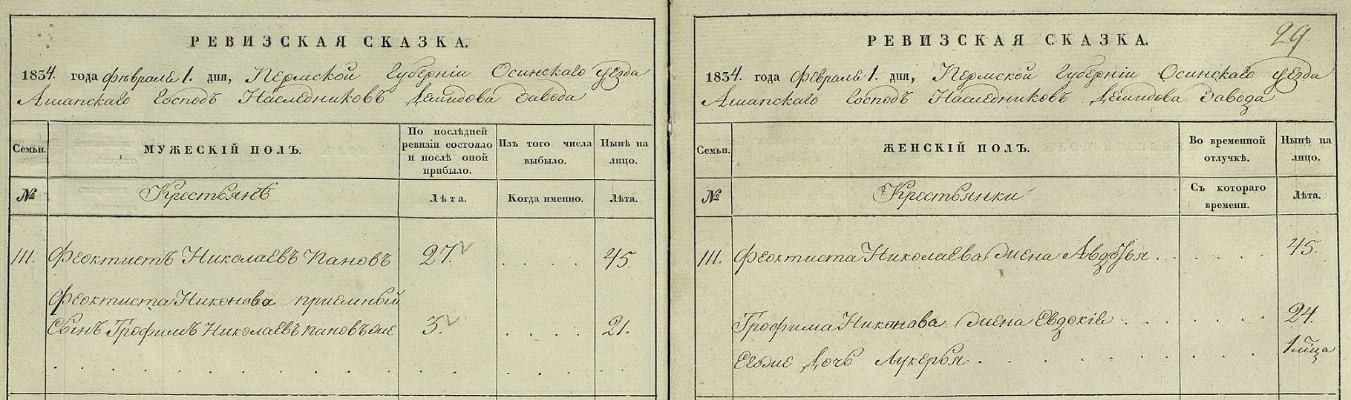 РЕВИЗСКАЯ СКАЗКА.
1834. года февраля 1. дня, Пермской Губерніи Осинскаго уезда
Ашапскаго Господъ Наследниковъ Демидова Завода
Семьи.
МУЖЕСКІЙ ПОЛ.
По последней ревизіи состояло и послѣ оной прибыло.
Изъ того числа выбыло.
Нынѣ на лицо.
№
Крестьянъ
Лѣта.
Когда именно.
Лѣта.
111. Феоктистъ Николаевъ Пановъ 27. 45.
Феоктиста Никонова приемный
Сынъ Трофимъ Николаевъ Пановъ же 3. 21.
29
РЕВИЗСКАЯ СКАЗКА.
1834. года февраля 1. дня, Пермской Губерніи Осинскаго уезда
Ашапскаго Господъ Наследниковъ Демидова Завода
Семьи.
ЖЕНСКІЙ ПОЛ.
Во временной отлучкѣ.
Нынѣ на лицо.
№
Крестьянки
Съ котораго времени.
Лѣта.
111. Феоктиста Николаева жена Авдотья 45.
Трофима Никонова жена Евдокіе 24.
Егоже Дочь Лукерья 1 м-ца